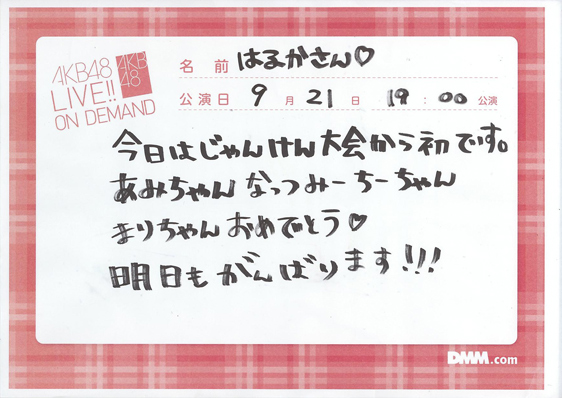 AKB48
LIVE!!
ON DEMAND
AKB
48
名前 はるかさん♡
公演日 9月21日 19:00公演
今日はじゃんけん大会から初です。
あみちゃんなっつみーちーちゃん
まりちゃんおめでとう♡
明日もがんばります!!!
DMM.com